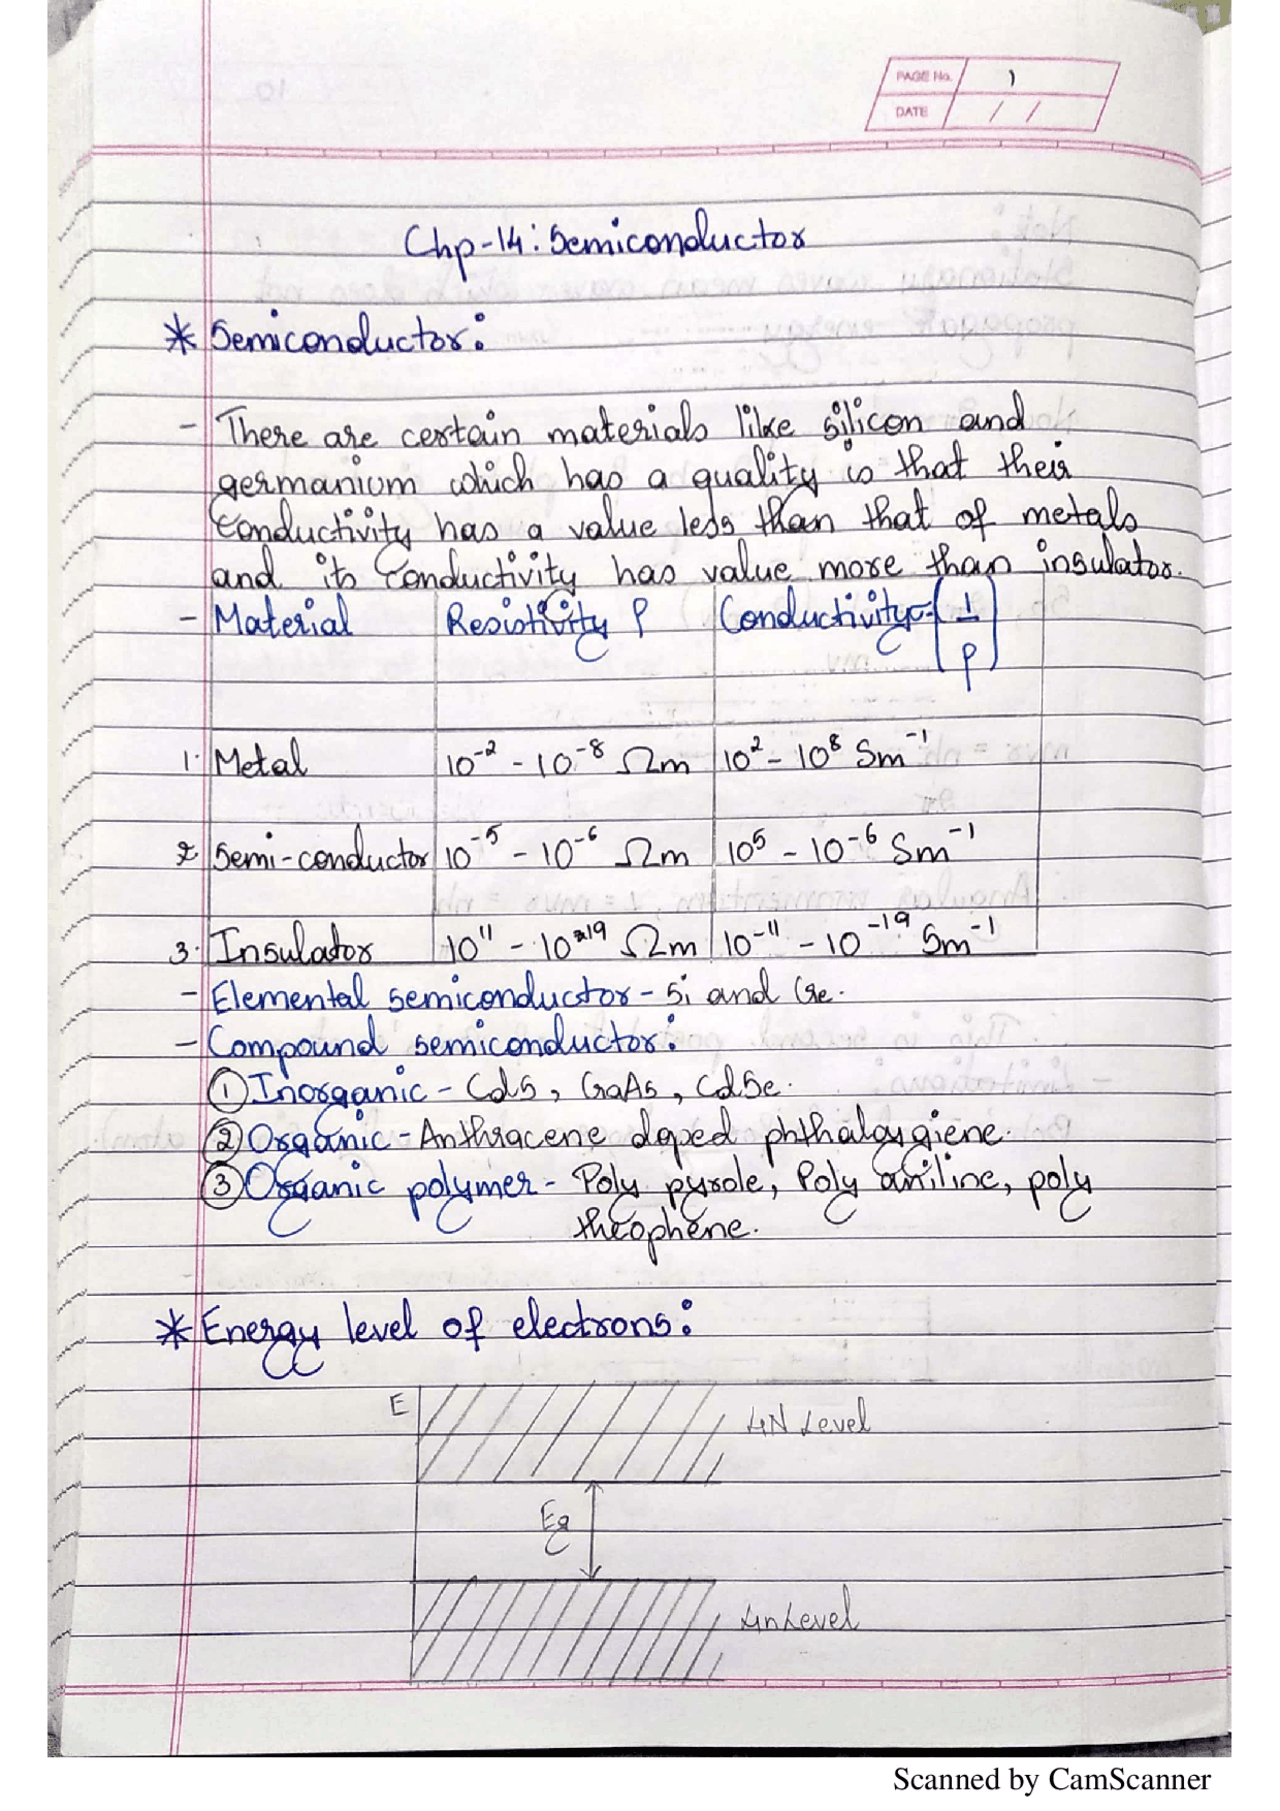 PAGE No. 1
DATE / /
Chp-14: Semiconductor
* Semiconductor:
- There are certain materials like silicon and
germanium which has a quality is that their
conductivity has a value less than that of metals
and its conductivity has value more than insulator.
- Material Resistivity ρ Conductivity σ = (1/ρ)
1. Metal 10⁻² - 10⁻⁸ Ωm 10² - 10⁸ Sm⁻¹
2. Semi-conductor 10⁻⁵ - 10⁻⁶ Ωm 10⁵ - 10⁻⁶ Sm⁻¹
3. Insulator 10¹¹ - 10¹⁹ Ωm 10⁻¹¹ - 10⁻¹⁹ Sm⁻¹
- Elemental semiconductor - Si and Ge.
- Compound semiconductor:
① Inorganic - CdS, GaAs, CdSe.
② Organic - Anthracene doped
③ Organic polymer - Poly pyrole, Poly aniline, poly
theophene.
* Energy level of electrons:
E 4N Level
Eg
4n Level
Scanned by CamScanner